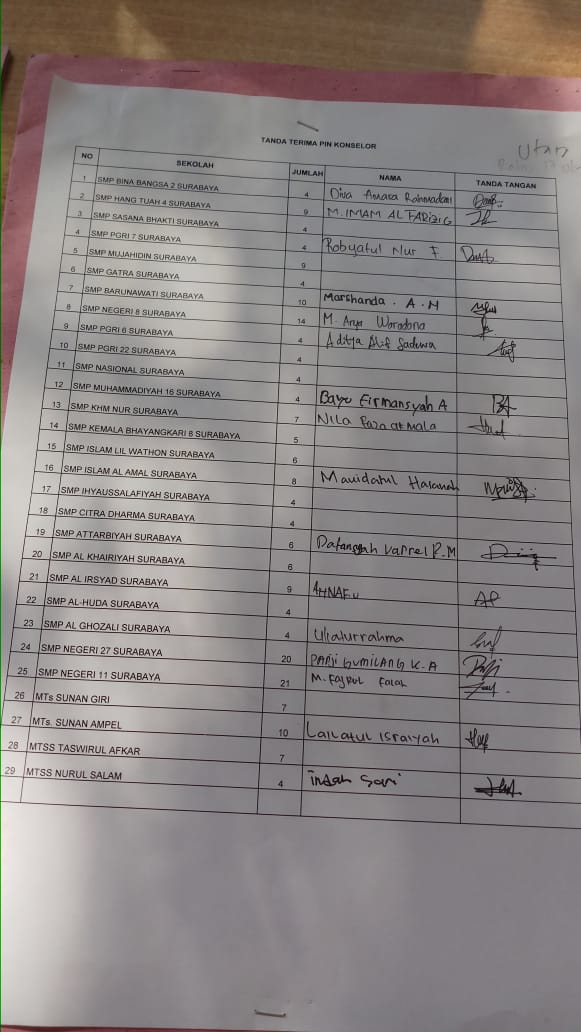 Utara
TANDA TERIMA PIN KONSELOR
NO SEKOLAH JUMLAH NAMA TANDA TANGAN
1 SMP BINA BANGSA 2 SURABAYA 4 Diva Amara Rahmadani
2 SMP HANG TUAH 4 SURABAYA 9 M. IMAM AL FARIZI G
3 SMP SASANA BHAKTI SURABAYA 4
4 SMP PGRI 7 SURABAYA 4 Robyatul Nur F.
5 SMP MUJAHIDIN SURABAYA 9
6 SMP GATRA SURABAYA 4
7 SMP BARUNAWATI SURABAYA 10 Marshanda . A . M
8 SMP NEGERI 8 SURABAYA 14 M. Arya Waradana
9 SMP PGRI 6 SURABAYA 4 Aditya Alif Sadewa
10 SMP PGRI 22 SURABAYA 4
11 SMP NASIONAL SURABAYA 4
12 SMP MUHAMMADIYAH 16 SURABAYA 4 Bayu Firmansyah A
13 SMP KHM NUR SURABAYA 7 Nila Faza at mala
14 SMP KEMALA BHAYANGKARI 8 SURABAYA 5
15 SMP ISLAM LIL WATHON SURABAYA 6
16 SMP ISLAM AL AMAL SURABAYA 8 Mauidatul Hasanah
17 SMP IHYAUSSALAFIYAH SURABAYA 4
18 SMP CITRA DHARMA SURABAYA 4
19 SMP ATTARBIYAH SURABAYA 6 Dafansyah Varrel P. M
20 SMP AL KHAIRIYAH SURABAYA 6
21 SMP AL IRSYAD SURABAYA 9 AHNAF.U
22 SMP AL-HUDA SURABAYA 4
23 SMP AL GHOZALI SURABAYA 4 Uliaturrahma
24 SMP NEGERI 27 SURABAYA 20 PANJI GUMILANG K. A
25 SMP NEGERI 11 SURABAYA 21 M. Fajrul Falah
26 MTs SUNAN GIRI 7
27 MTs. SUNAN AMPEL 10 Lailatul Israiyah
28 MTSS TASWIRUL AFKAR 7
29 MTSS NURUL SALAM 4 Indah Sari